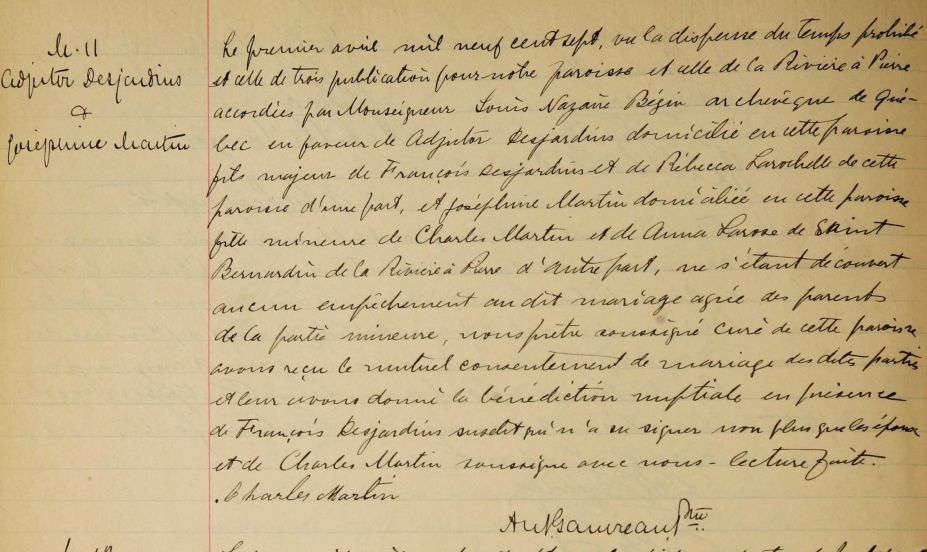 M. 11
Adjutor Desjardins
&
Joséphine Martin
Le premier avril mil neuf cent sept, vu la dispense du temps prohibé
et celle de trois publication pour notre paroisse et celle de la Rivière à Pierre
accordées par Monseigneur Louis Nazaire Bégin archevêque de Qué-
bec en faveur de Adjutor Desjardins domicilié en cette paroisse
fils majeur de François Desjardins et de Rébecca Larochelle de cette
paroisse d'une part, et Joséphine Martin domiciliée en cette paroisse
fille mineure de Charles Martin et de Anna Larose de Saint
Bernardin de la Rivière à Pierre d'autre part, ne s'étant découvert
aucun empêchement au dit mariage agrée des parents
de la partie mineure, nous prêtre soussigné curé de cette paroisse
avons reçu le mutuel consentement de mariage des dites parties
et leur avons donné la bénédiction nuptiale en présence
de François Desjardins susdit qui n'a su signer non plus que les époux
et de Charles Martin soussigné avec nous - lecture faite.
Charles Martin
Ptre